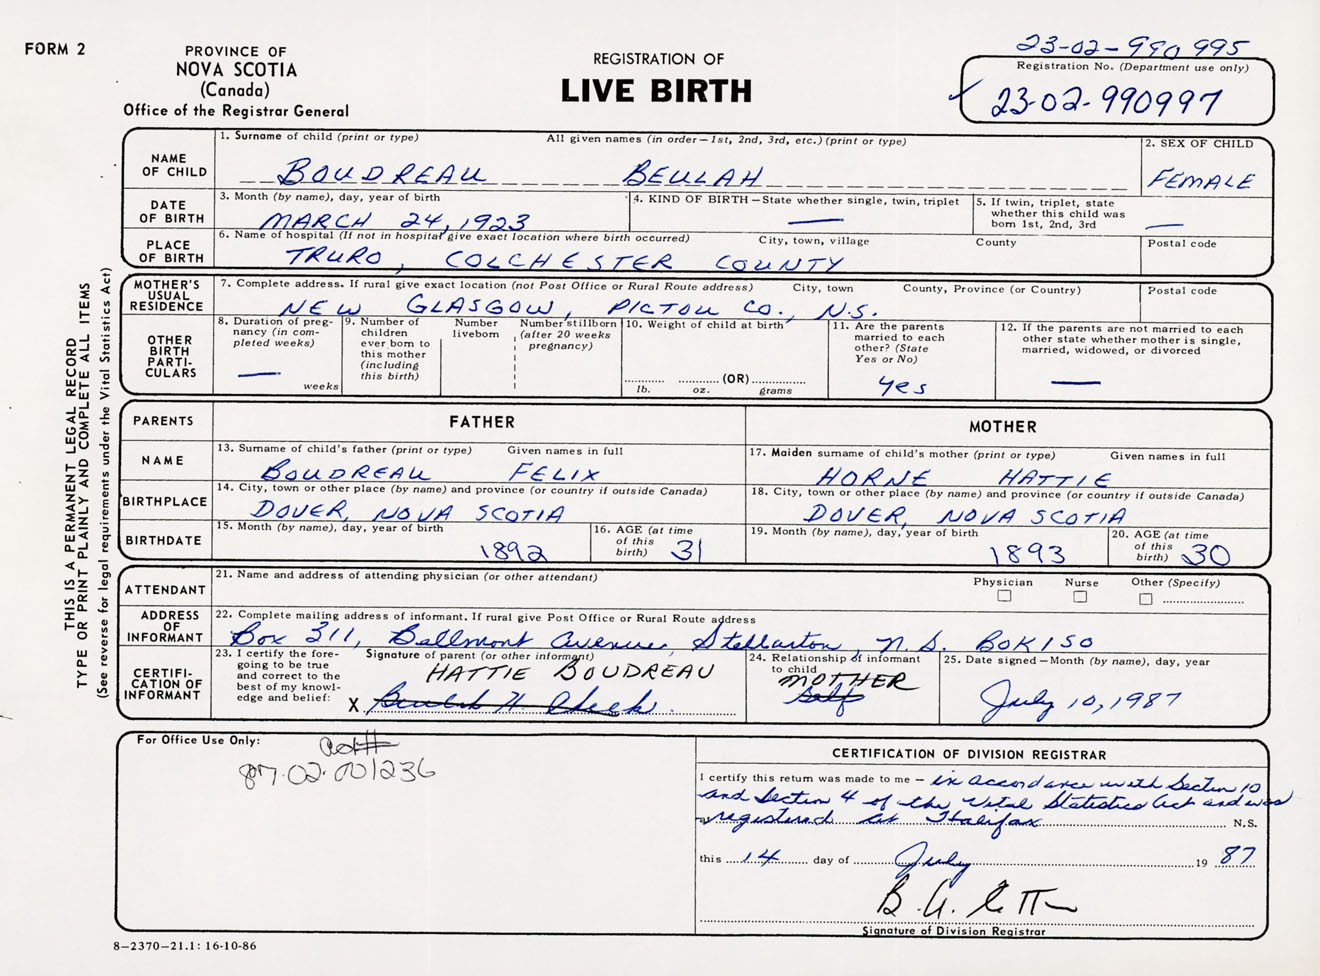 FORM 2
PROVINCE OF
NOVA SCOTIA
(Canada)
Office of the Registrar General
REGISTRATION OF
LIVE BIRTH
23-02-990995
Registration No. (Department use only)
23-02-990997
THIS IS A PERMANENT LEGAL RECORD
TYPE OR PRINT PLAINLY AND COMPLETE ALL ITEMS
(See reverse for legal requirements under the Vital Statistics Act)
NAME
OF CHILD
1. Surname of child (print or type) All given names (in order—1st, 2nd, 3rd, etc.) (print or type)
BOUDREAU BEULAH
2. SEX OF CHILD
FEMALE
DATE
OF BIRTH
3. Month (by name), day, year of birth
MARCH 24, 1923
4. KIND OF BIRTH—State whether single, twin, triplet
—
5. If twin, triplet, state
whether this child was
born 1st, 2nd, 3rd
—
PLACE
OF BIRTH
6. Name of hospital (If not in hospital give exact location where birth occurred) City, town, village County
TRURO, COLCHESTER COUNTY
Postal code
MOTHER'S
USUAL
RESIDENCE
7. Complete address. If rural give exact location (not Post Office or Rural Route address) City, town County, Province (or Country)
NEW GLASGOW, PICTOU CO., N.S.
Postal code
OTHER
BIRTH
PARTI-
CULARS
8. Duration of preg-
nancy (in com-
pleted weeks)
—
weeks
9. Number of
children
ever born to
this mother
(including
this birth)
Number
liveborn
Number stillborn
(after 20 weeks
pregnancy)
10. Weight of child at birth
(OR)
lb. oz. grams
11. Are the parents
married to each
other? (State
Yes or No)
yes
12. If the parents are not married to each
other state whether mother is single,
married, widowed, or divorced
—
PARENTS
FATHER
MOTHER
NAME
13. Surname of child's father (print or type) Given names in full
BOUDREAU FELIX
17. Maiden surname of child's mother (print or type) Given names in full
HORNE HATTIE
BIRTHPLACE
14. City, town or other place (by name) and province (or country if outside Canada)
DOVER, NOVA SCOTIA
18. City, town or other place (by name) and province (or country if outside Canada)
DOVER, NOVA SCOTIA
BIRTHDATE
15. Month (by name), day, year of birth
1892
16. AGE (at time
of this
birth) 31
19. Month (by name), day, year of birth
1893
20. AGE (at time
of this
birth) 30
ATTENDANT
21. Name and address of attending physician (or other attendant)
Physician Nurse Other (Specify)
ADDRESS
OF
INFORMANT
22. Complete mailing address of informant. If rural give Post Office or Rural Route address
Box 311, Bellmont Avenue, Stellarton, N.S. B0K1S0
CERTIFI-
CATION OF
INFORMANT
23. I certify the fore-
going to be true
and correct to the
best of my knowl-
edge and belief:
Signature of parent (or other informant)
HATTIE BOUDREAU
X Beulah H Cheek
24. Relationship of informant
to child
MOTHER
Self
25. Date signed—Month (by name), day, year
July 10, 1987
For Office Use Only:
87-02-001236
CERTIFICATION OF DIVISION REGISTRAR
I certify this return was made to me - in accordance with Section 10
and Section 4 of the Vital Statistics Act and was
registered at Halifax N.S.
this 14 day of July 19 87
Signature of Division Registrar
8—2370—21.1: 16-10-86